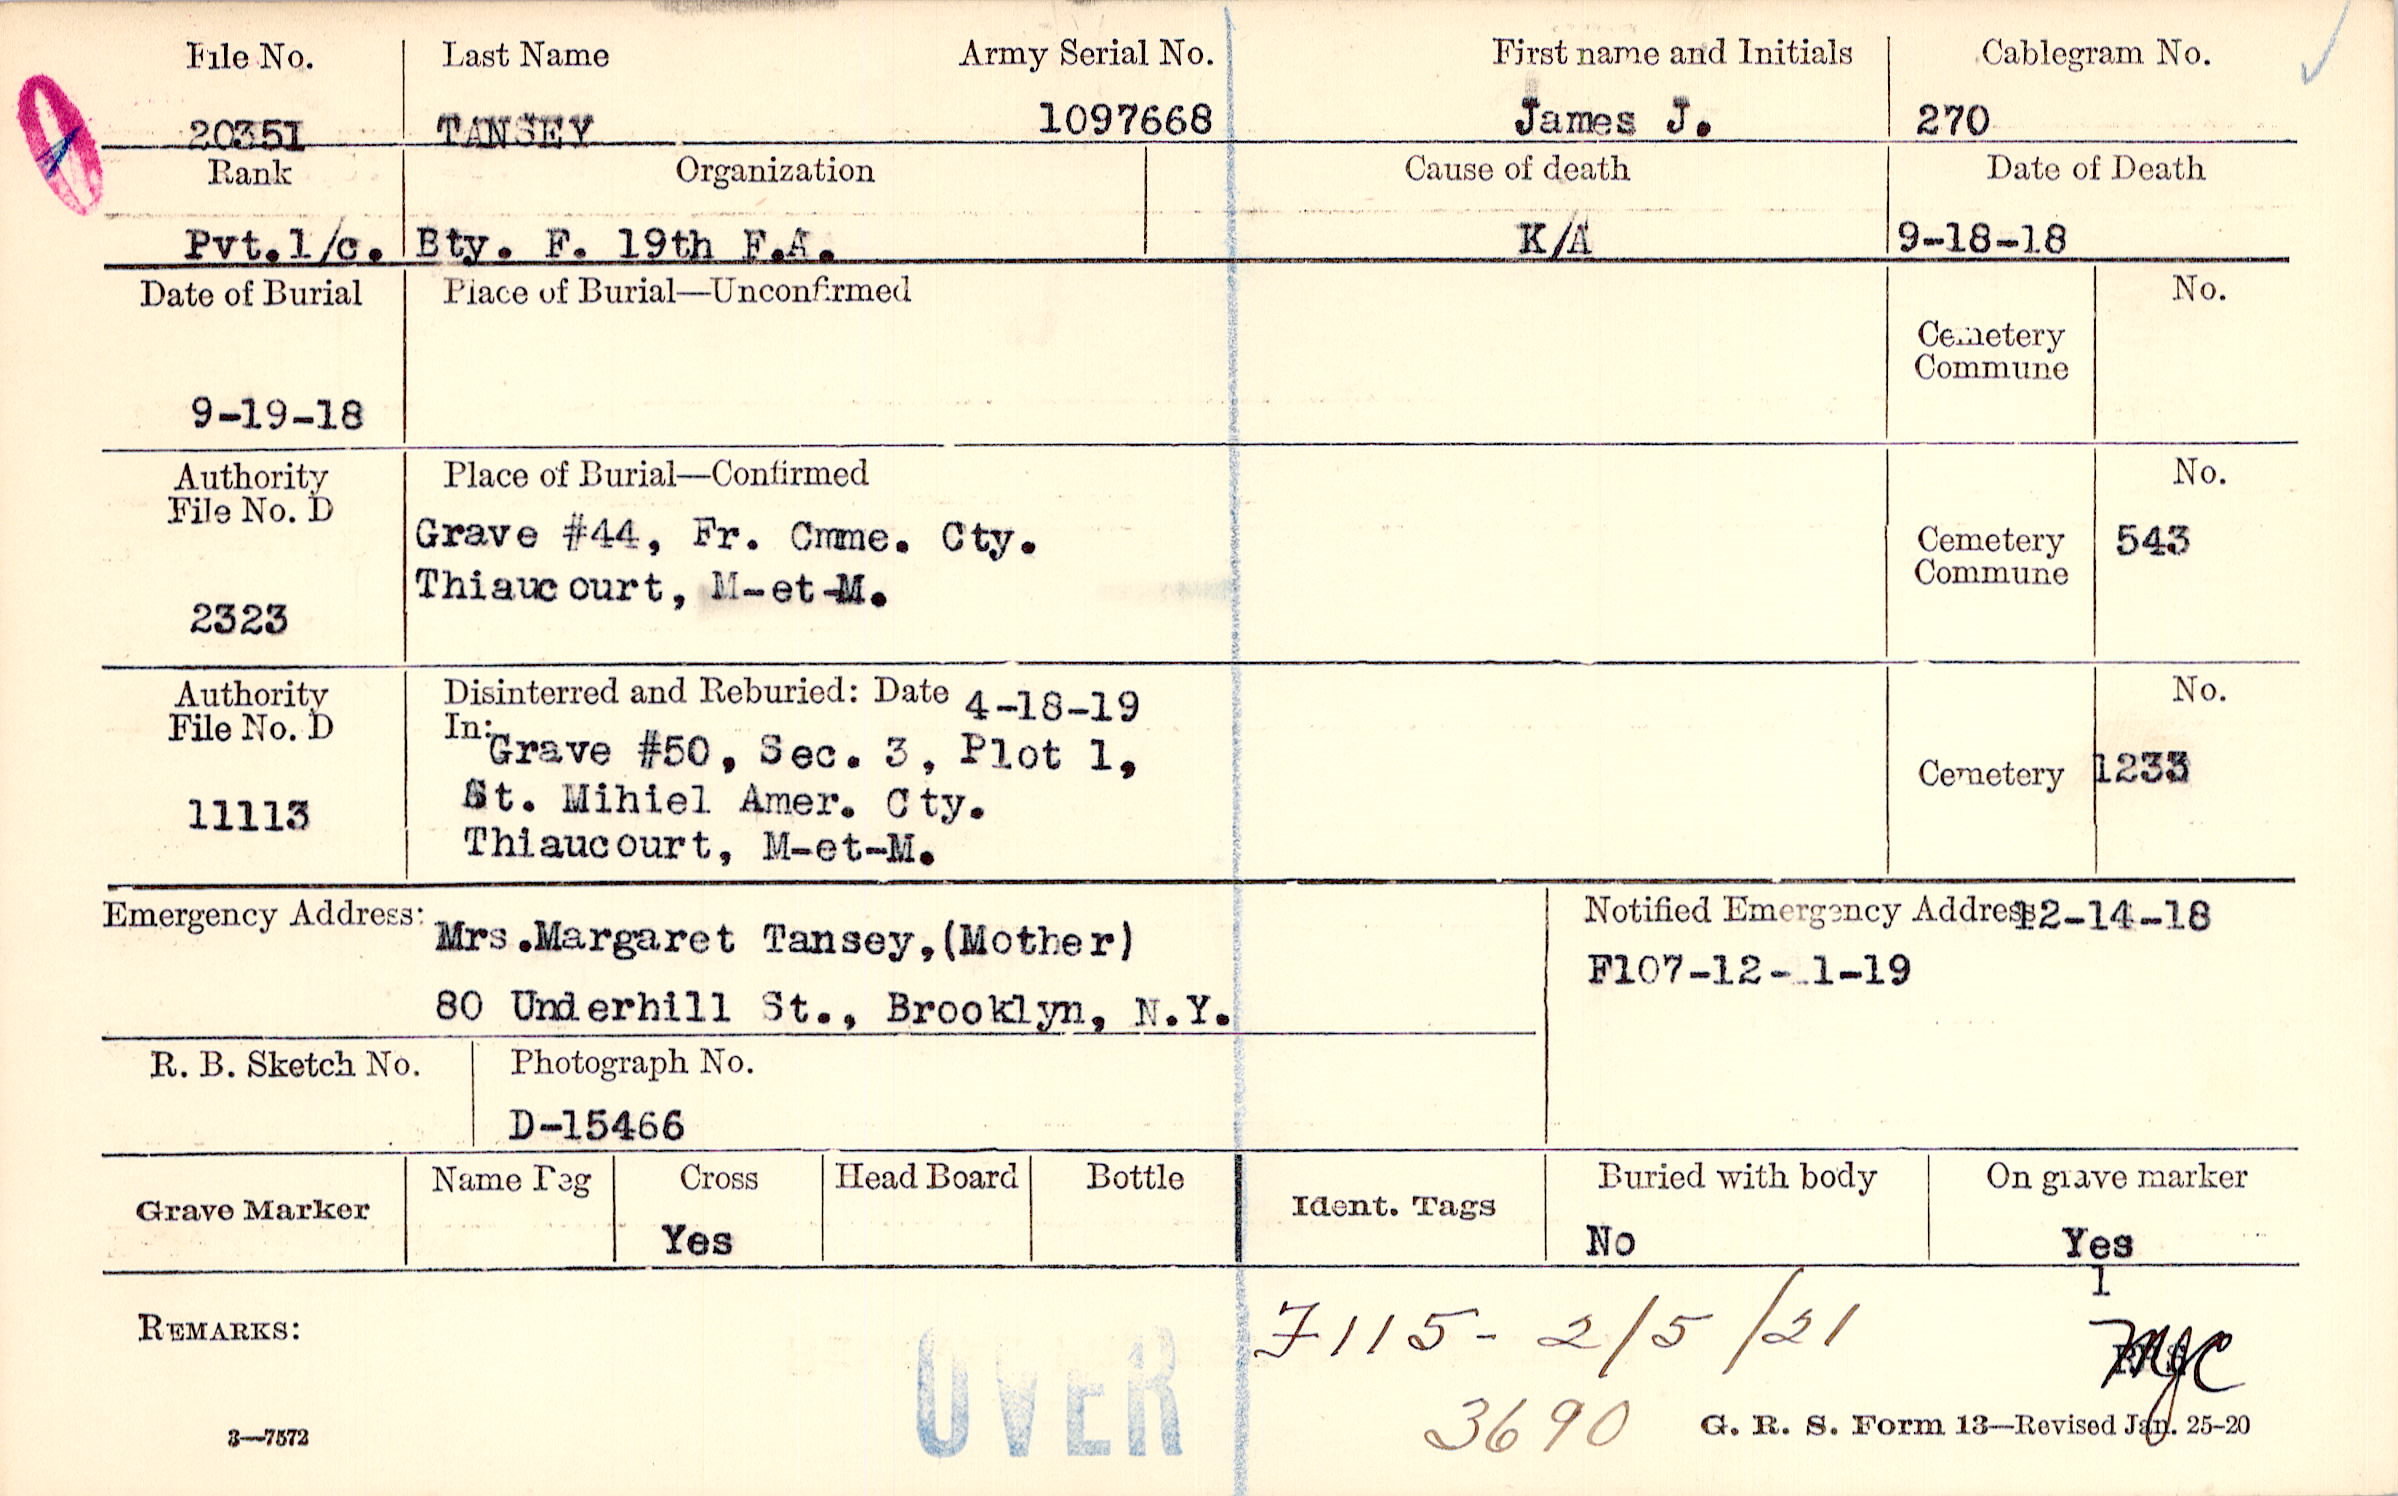 File No. Last Name Army Serial No. First name and Initials Cablegram No.
20351 TANSEY 1097668 James J. 270
Rank Organization Cause of death Date of Death
Pvt.1/c. Bty. F. 19th F.A. K/A 9-18-18
Date of Burial Place of Burial—Unconfirmed No.
Cemetery
Commune
9-19-18
Authority Place of Burial—Confirmed No.
File No. D
Grave #44, Fr. Cmme. Cty. Cemetery 543
Thiaucourt, M-et-M. Commune
2323
Authority Disinterred and Reburied: Date 4-18-19 No.
File No. D In:
Grave #50, Sec. 3, Plot 1, Cemetery 1233
11113 St. Mihiel Amer. Cty.
Thiaucourt, M-et-M.
Emergency Address: Mrs.Margaret Tansey,(Mother) Notified Emergency Address 12-14-18
80 Underhill St., Brooklyn, N.Y. F107-12- 1-19
R. B. Sketch No. Photograph No.
D-15466
Grave Marker Name Peg Cross Head Board Bottle Ident. Tags Buried with body On grave marker
Yes No Yes
1
REMARKS: F115- 2/5/21 MJC
OVER 3690
3—7572 G. R. S. Form 13—Revised Jan. 25-20